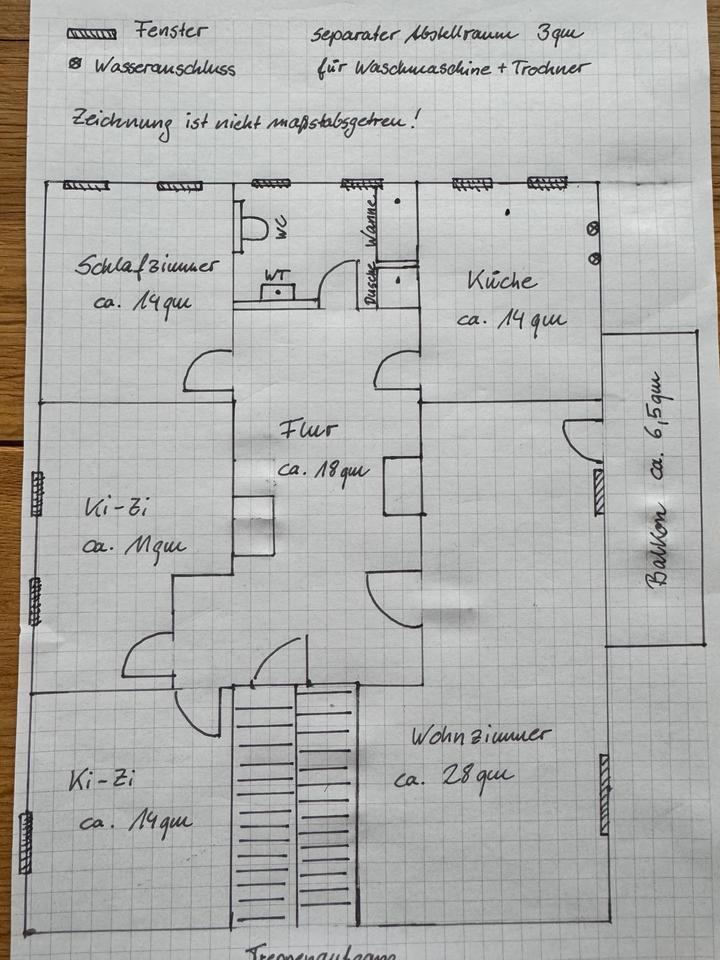 Fenster
separater Abstellraum 3qm
Wasseranschluss
für Waschmaschine + Trockner
Zeichnung ist nicht maßstabsgetreu!
WC
Wanne
Schlafzimmer
ca. 14qm
WT
Dusche
Küche
ca. 14qm
Flur
ca. 18qm
Balkon ca. 6,5qm
Ki-Zi
ca. 11qm
Wohnzimmer
ca. 28qm
Ki-Zi
ca. 14qm
Treppenaufgang